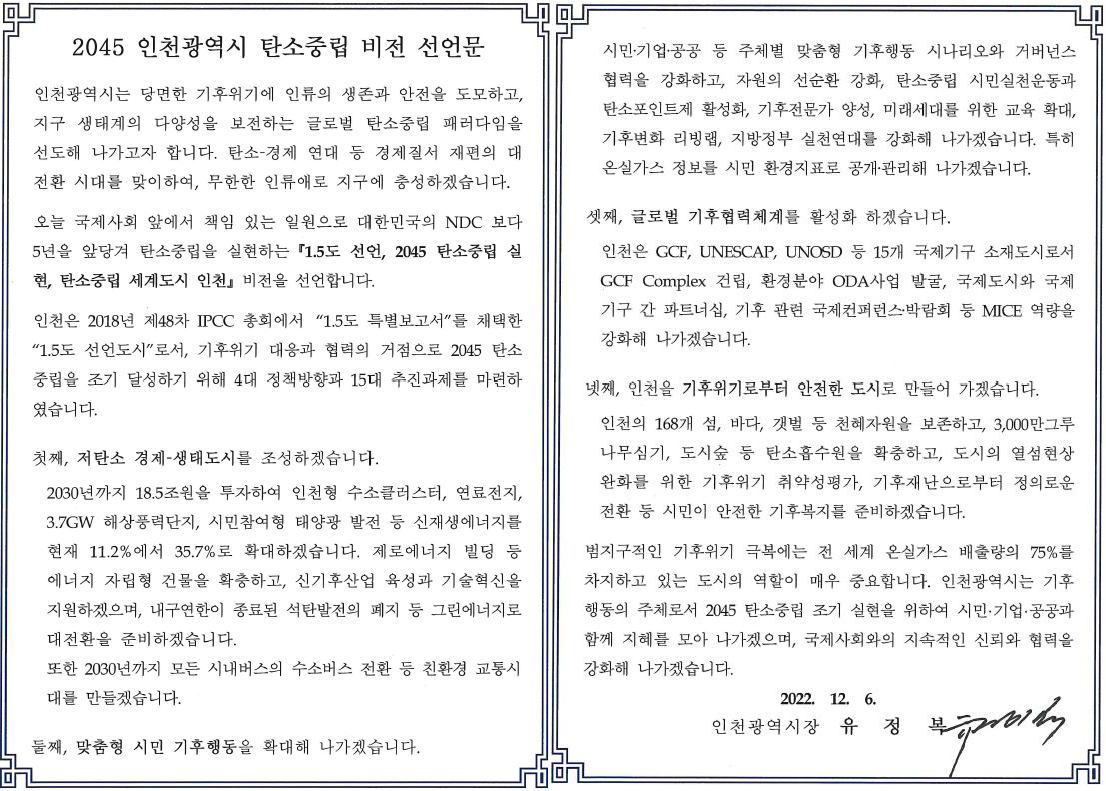 2045 인천광역시 탄소중립 비전 선언문
인천광역시는 당면한 기후위기에 인류의 생존과 안전을 도모하고,
지구 생태계의 다양성을 보전하는 글로벌 탄소중립 패러다임을
선도해 나가고자 합니다. 탄소-경제 연대 등 경제질서 재편의 대
전환 시대를 맞이하여, 무한한 인류애로 지구에 충성하겠습니다.
오늘 국제사회 앞에서 책임 있는 일원으로 대한민국의 NDC 보다
5년을 앞당겨 탄소중립을 실현하는 『1.5도 선언, 2045 탄소중립 실
현, 탄소중립 세계도시 인천』 비전을 선언합니다.
인천은 2018년 제48차 IPCC 총회에서 “1.5도 특별보고서”를 채택한
“1.5도 선언도시”로서, 기후위기 대응과 협력의 거점으로 2045 탄소
중립을 조기 달성하기 위해 4대 정책방향과 15대 추진과제를 마련하
였습니다.
첫째, 저탄소 경제-생태도시를 조성하겠습니다.
2030년까지 18.5조원을 투자하여 인천형 수소클러스터, 연료전지,
3.7GW 해상풍력단지, 시민참여형 태양광 발전 등 신재생에너지를
현재 11.2%에서 35.7%로 확대하겠습니다. 제로에너지 빌딩 등
에너지 자립형 건물을 확충하고, 신기후산업 육성과 기술혁신을
지원하겠으며, 내구연한이 종료된 석탄발전의 폐지 등 그린에너지로
대전환을 준비하겠습니다.
또한 2030년까지 모든 시내버스의 수소버스 전환 등 친환경 교통시
대를 만들겠습니다.
둘째, 맞춤형 시민 기후행동을 확대해 나가겠습니다.
시민·기업·공공 등 주체별 맞춤형 기후행동 시나리오와 거버넌스
협력을 강화하고, 자원의 선순환 강화, 탄소중립 시민실천운동과
탄소포인트제 활성화, 기후전문가 양성, 미래세대를 위한 교육 확대,
기후변화 리빙랩, 지방정부 실천연대를 강화해 나가겠습니다. 특히
온실가스 정보를 시민 환경지표로 공개·관리해 나가겠습니다.
셋째, 글로벌 기후협력체계를 활성화 하겠습니다.
인천은 GCF, UNESCAP, UNOSD 등 15개 국제기구 소재도시로서
GCF Complex 건립, 환경분야 ODA사업 발굴, 국제도시와 국제
기구 간 파트너십, 기후 관련 국제컨퍼런스·박람회 등 MICE 역량을
강화해 나가겠습니다.
넷째, 인천을 기후위기로부터 안전한 도시로 만들어 가겠습니다.
인천의 168개 섬, 바다, 갯벌 등 천혜자원을 보존하고, 3,000만그루
나무심기, 도시숲 등 탄소흡수원을 확충하고, 도시의 열섬현상
완화를 위한 기후위기 취약성평가, 기후재난으로부터 정의로운
전환 등 시민이 안전한 기후복지를 준비하겠습니다.
범지구적인 기후위기 극복에는 전 세계 온실가스 배출량의 75%를
차지하고 있는 도시의 역할이 매우 중요합니다. 인천광역시는 기후
행동의 주체로서 2045 탄소중립 조기 실현을 위하여 시민·기업·공공과
함께 지혜를 모아 나가겠으며, 국제사회와의 지속적인 신뢰와 협력을
강화해 나가겠습니다.
2022. 12. 6.
인천광역시장 유 정 복